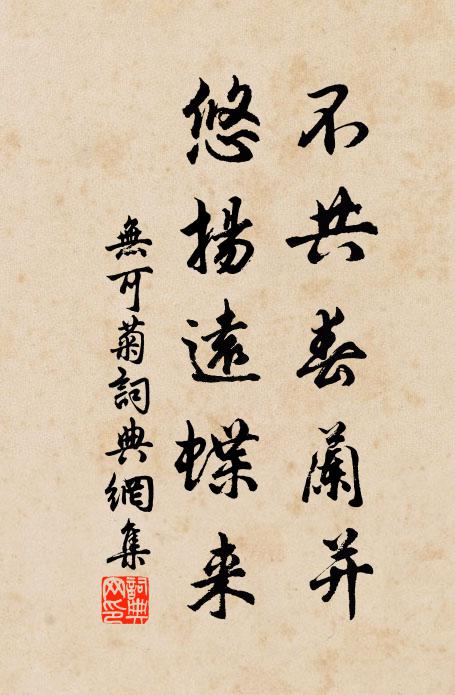 不共春蘭并
悠揚遠蝶来
無可菊詞典網集
詞典网印